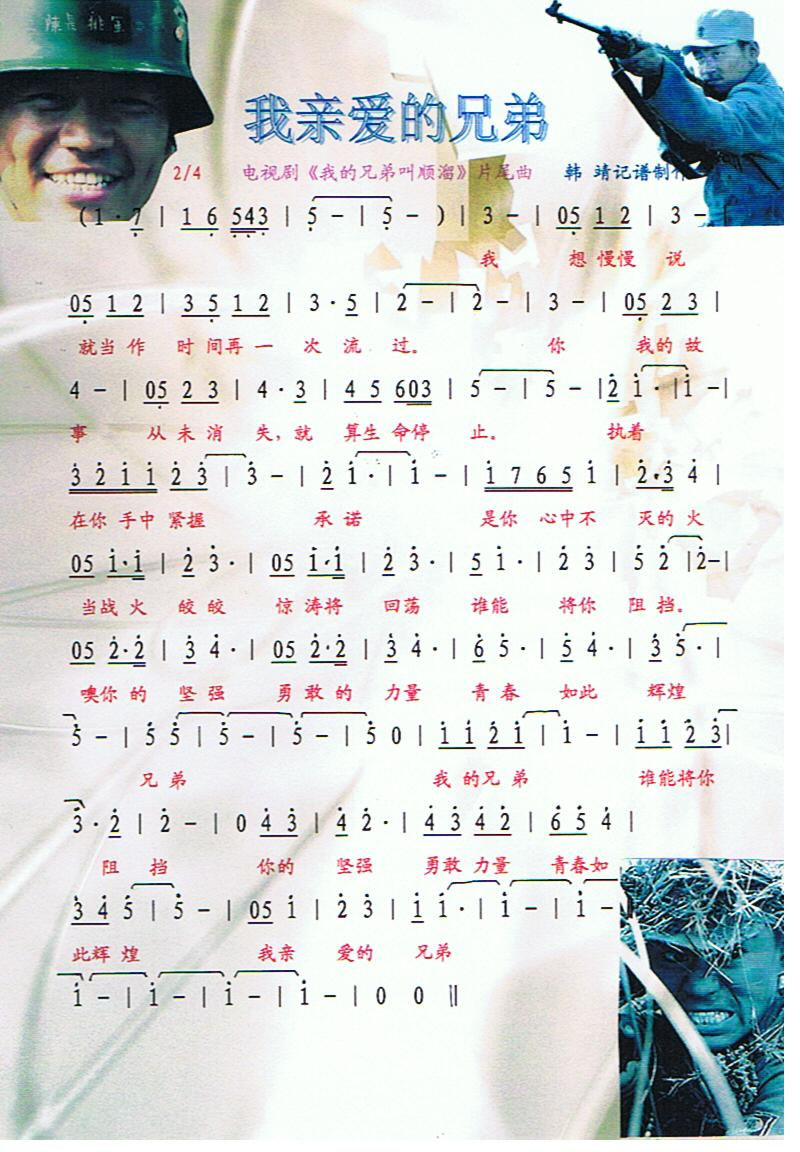 我亲爱的兄弟
2/4 电视剧《我的兄弟叫顺溜》片尾曲 韩 靖记谱制作
( 1 · 7 | 1 6 543 | 5 – | 5 – ) | 3 – | 05 1 2 | 3 – |
我 想 慢慢 说
05 1 2 | 3 5 1 2 | 3 · 5 | 2 – | 2 – | 3 – | 05 2 3 |
就当 作 时 间再 一 次 流 过。 你 我的 故
4 – | 05 2 3 | 4 · 3 | 4 5 603 | 5 – | 5 – | 2 1 · | 1 – |
事 从 未 消 失，就 算生 命停 止。 执着
3 2 1 1 2 3 | 3 – | 2 1 · | 1 – | 1 7 6 5 1 | 2·3 4 |
在你 手中 紧握 承 诺 是你 心中不 灭的 火
05 1·1 | 2 3 · | 05 1·1 | 2 3 · | 5 1 · | 2 3 | 5 2 | 2– |
当战 火 皎皎 惊 涛将 回荡 谁能 将你 阻 挡。
05 2·2 | 3 4 · | 05 2·2 | 3 4 · | 6 5 · | 5 4 · | 3 5 · |
噢你 的 坚 强 勇 敢 的 力量 青 春 如此 辉煌
5 – | 5 5 | 5 – | 5 – | 5 0 | 1 1 2 1 | 1 – | 1 1 2 3 |
兄 弟 我 的兄 弟 谁能将你
3 · 2 | 2 – | 0 4 3 | 4 2 · | 4 3 4 2 | 6 5 4 |
阻 挡 你的 坚强 勇敢 力量 青春如
3 4 5 | 5 – | 05 1 | 2 3 | 1 1 · | 1 – | 1 – |
此辉 煌 我亲 爱的 兄弟
1 – | 1 – | 1 – | 1 – | 0 0 ‖